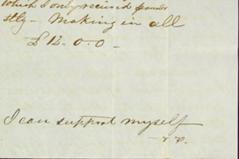 which I only received pounds
stg - Making in all
£12. 0. 0 -
I can support myself